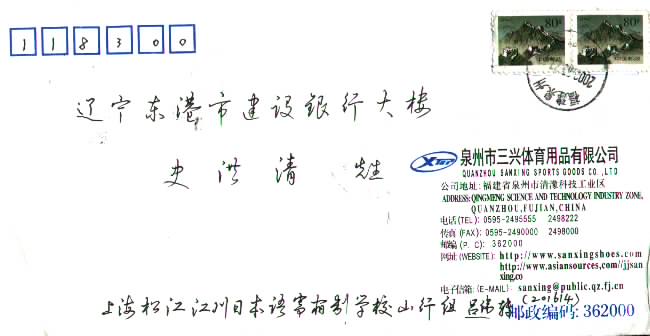 118300
80 80
辽宁东港市建设银行大楼
史洪清 先生
福建泉州
泉州市三兴体育用品有限公司
QUANZHOU SANXING SPORTS GOODS CO.,LTD
公司地址:福建省泉州市清濛科技工业区
ADDRESS:QINGMENG SCIENCE AND TECHNOLOGY INDUSTRY ZONE,
QUANZHOU,FUJIAN,CHINA
电话(TEL): 0595-2495555 2498222
传真(FAX): 0595-2490000 2498000
邮编(P.C): 362000
网址(WEBSITE): http://www.sanxingshoes.com
http://www.asiansources.com//jjsan
xing.co
电子信箱(E-MAIL): sanxing@public.qz.fj.cn
上海松江江川日本语寄宿制学校 组 吕
(201614)
邮政编码: 362000